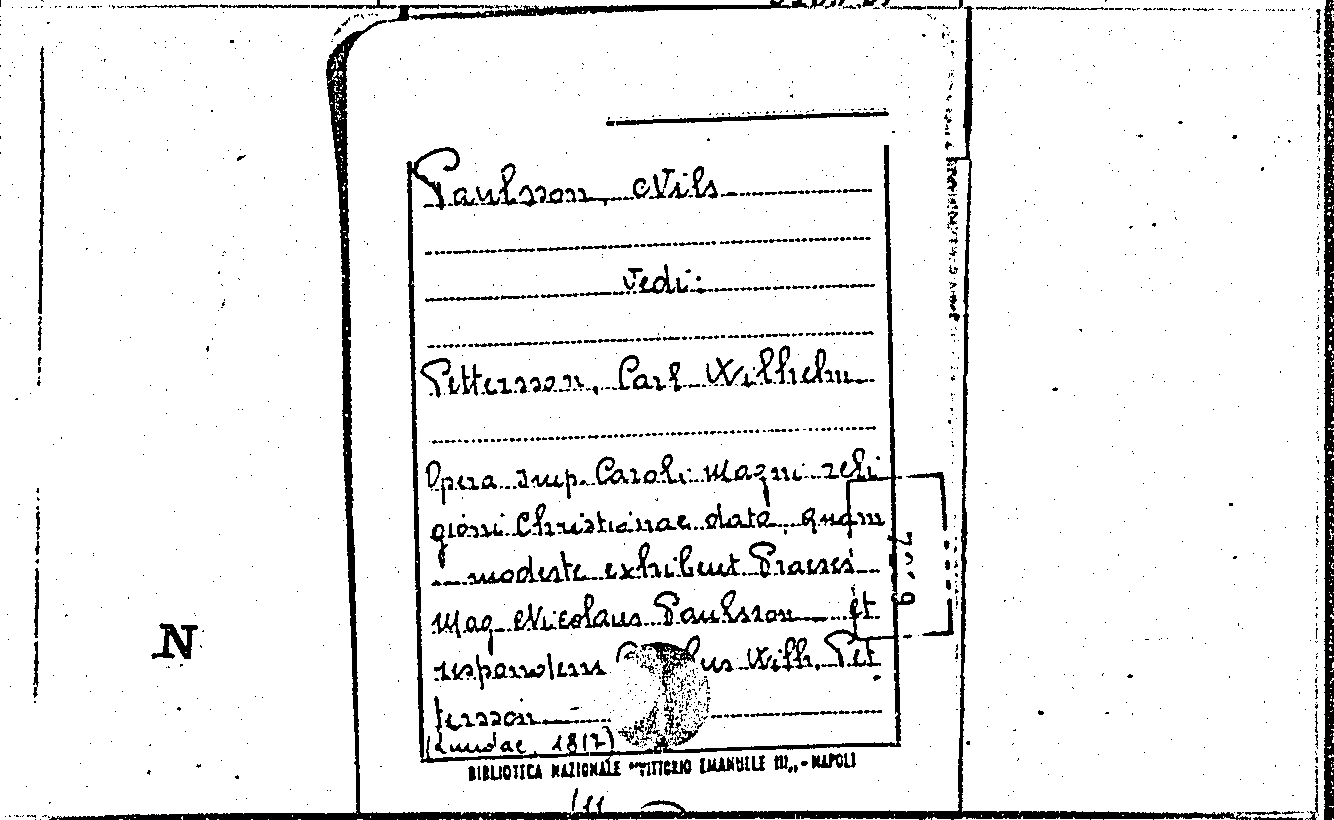 Paulsson, Nils
Vedi:
Pettersson, Carl Wilhelm
Opera Imp. Caroli Magni reli
gioni Christianae data, quam
modeste exhibent Praeses
Mag Nicolaus Paulsson et
respondens us Wilh. Pet
tersson
(Lundae, 1817)
BIBLIOTECA NAZIONALE "VITTORIO EMANUELE III„ - NAPOLI
N